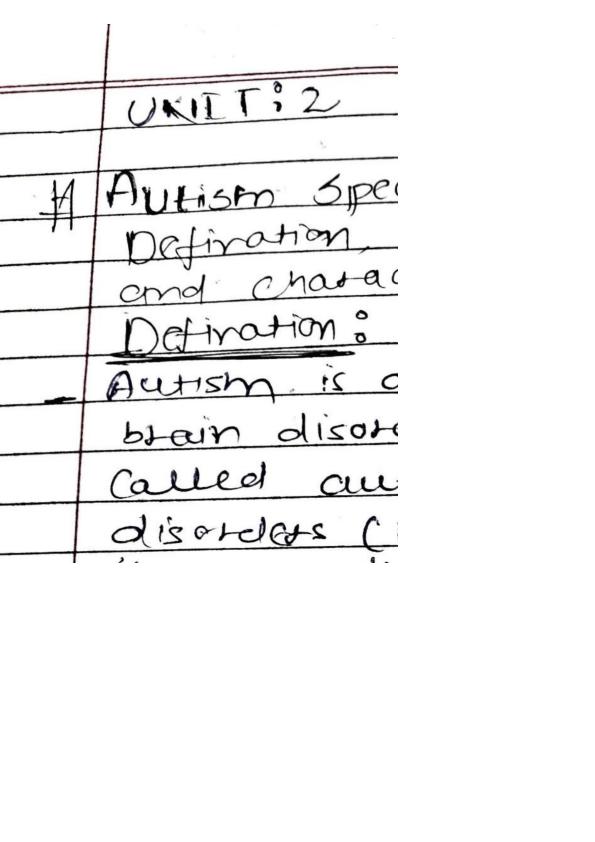 UNIT : 2
# Autism Spec
Defination,
and charac
Defination :
- Autism is a
brain disor
called au
disorders (